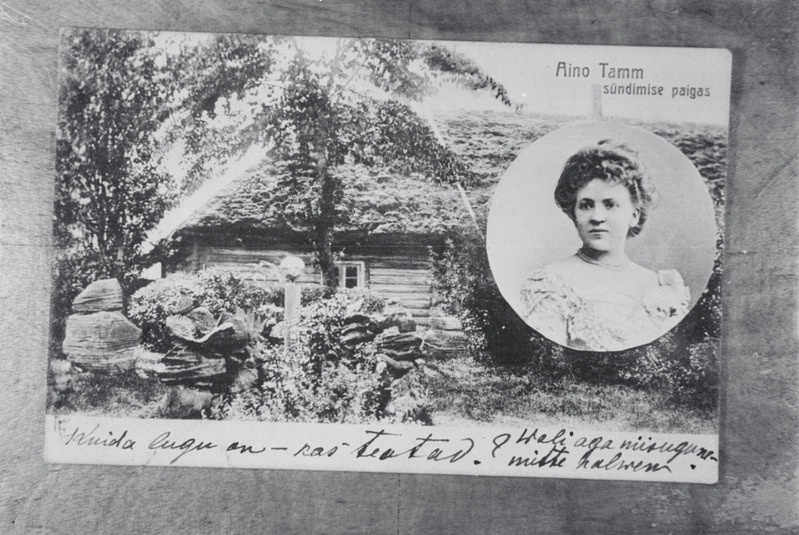 Aino Tamm
sündimise paigas
Kuida lugu on – kas teatad. ? Wali aga missugune –
mitte halwem.